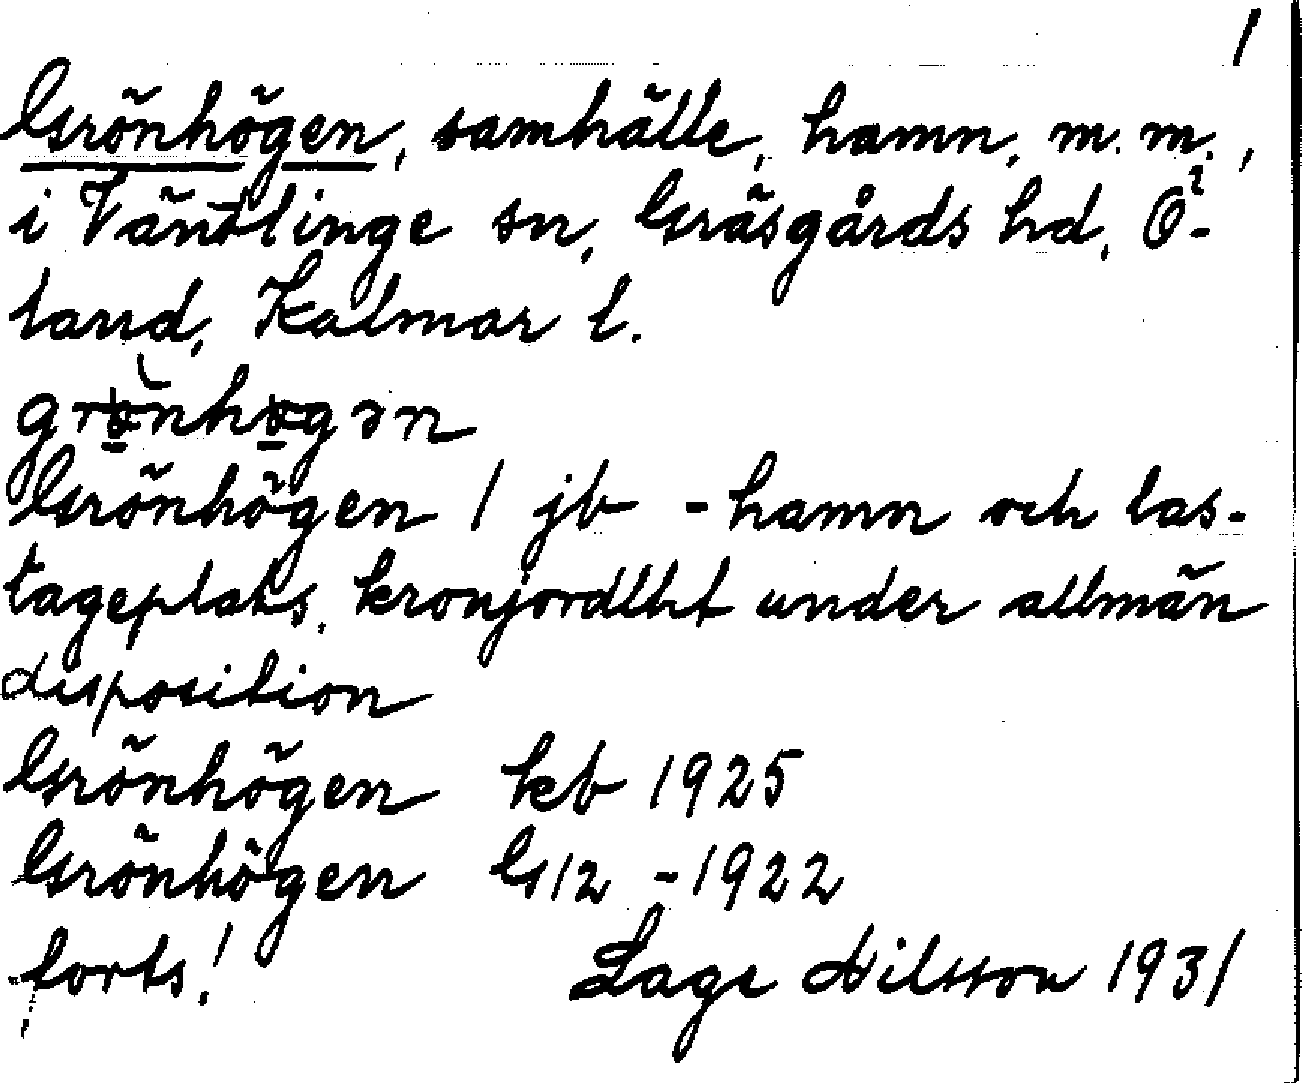 1
Grönhögen, samhälle, hamn, m.m.,
i Väntlinge sn, Gräsgårds hd, Ö-
land, Kalmar l.
Grönhögen 1 jb - hamn och las-
tageplats, kronjordlht under allmän
disposition
Grönhögen kb 1925
Grönhögen G12 - 1922
forts! Lage Nilsson 1931